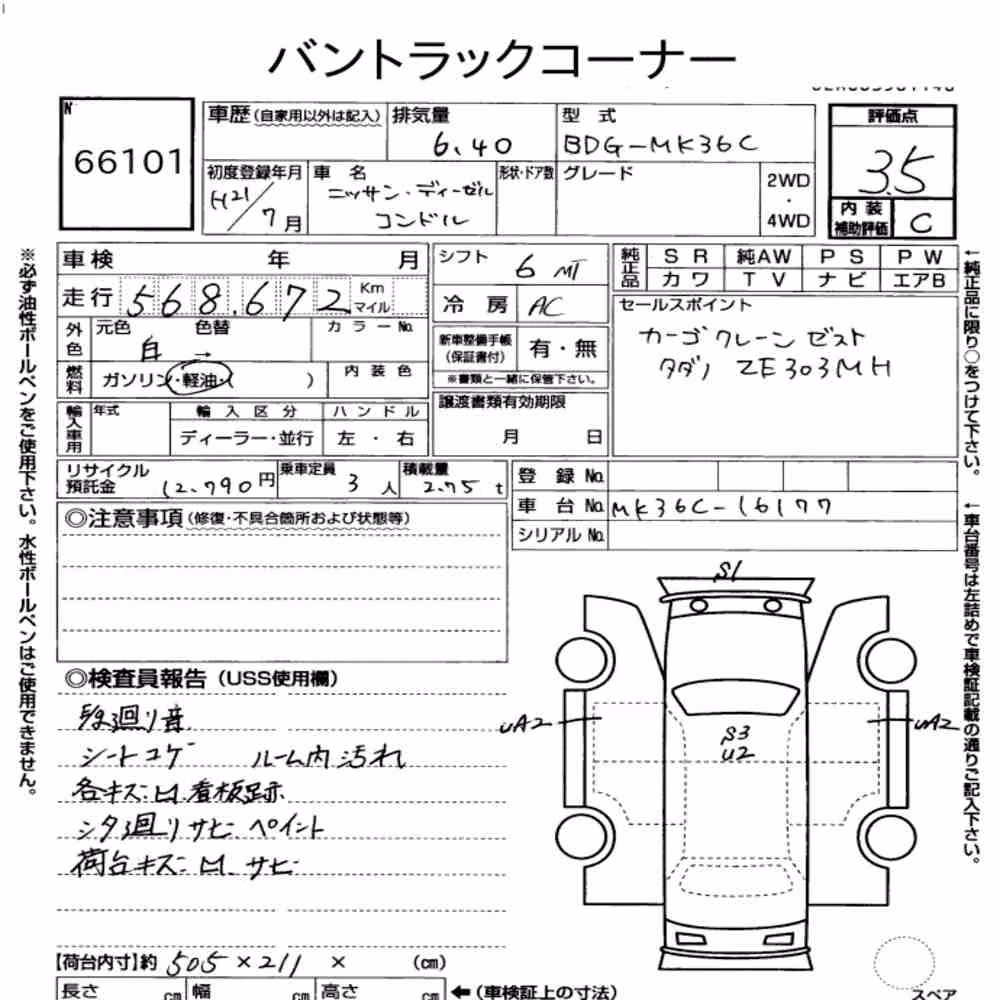 バントラックコーナー
No
66101
車歴(自家用以外は記入)
排気量
6.40
型式
BDG-MK36C
評価点
3.5
内装補助評価
C
初度登録年月
H21/7月
車名
ニッサン・ディーゼル
コンドル
形状・ドア数
グレード
2WD
・
4WD
車検 年 月
走行 568.672 Km マイル
外色
元色 色替
白 →
カラーNo.
燃料
ガソリン・軽油・( )
内装色
輸入車用
年式
輸入区分
ディーラー・並行
ハンドル
左・右
シフト
6 MT
冷房
AC
新車整備手帳
(保証書付)
有・無
※書類と一緒に保管下さい。
譲渡書類有効期限
月 日
純正品
SR 純AW PS PW
カワ TV ナビ エアB
セールスポイント
カーゴクレーン ゼスト
タダノ ZE303MH
リサイクル預託金
12.790円
乗車定員
3人
積載量
2.75 t
登録No.
車台No. MK36C-16177
シリアルNo.
◎注意事項(修復・不具合箇所および状態等)
◎検査員報告(USS使用欄)
シートコゲ ルーム内汚れ
各キズ.凹.看板跡
シタ廻りサビ ペイント
荷台キズ.凹.サビ
S1
UA2
S3
U2
UA2
【荷台内寸】約 505×211 × (cm)
長さ cm 幅 cm 高さ cm
←(車検証上の寸法)
スペア
※必ず油性ボールペンをご使用下さい。水性ボールペンはご使用できません。
←純正品に限り○をつけて下さい。
←車台番号は左詰めで車検証記載の通りご記入下さい。